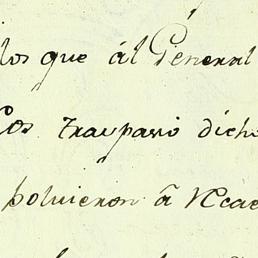 los que ál General
los traspasó dich
polvieron â Nca